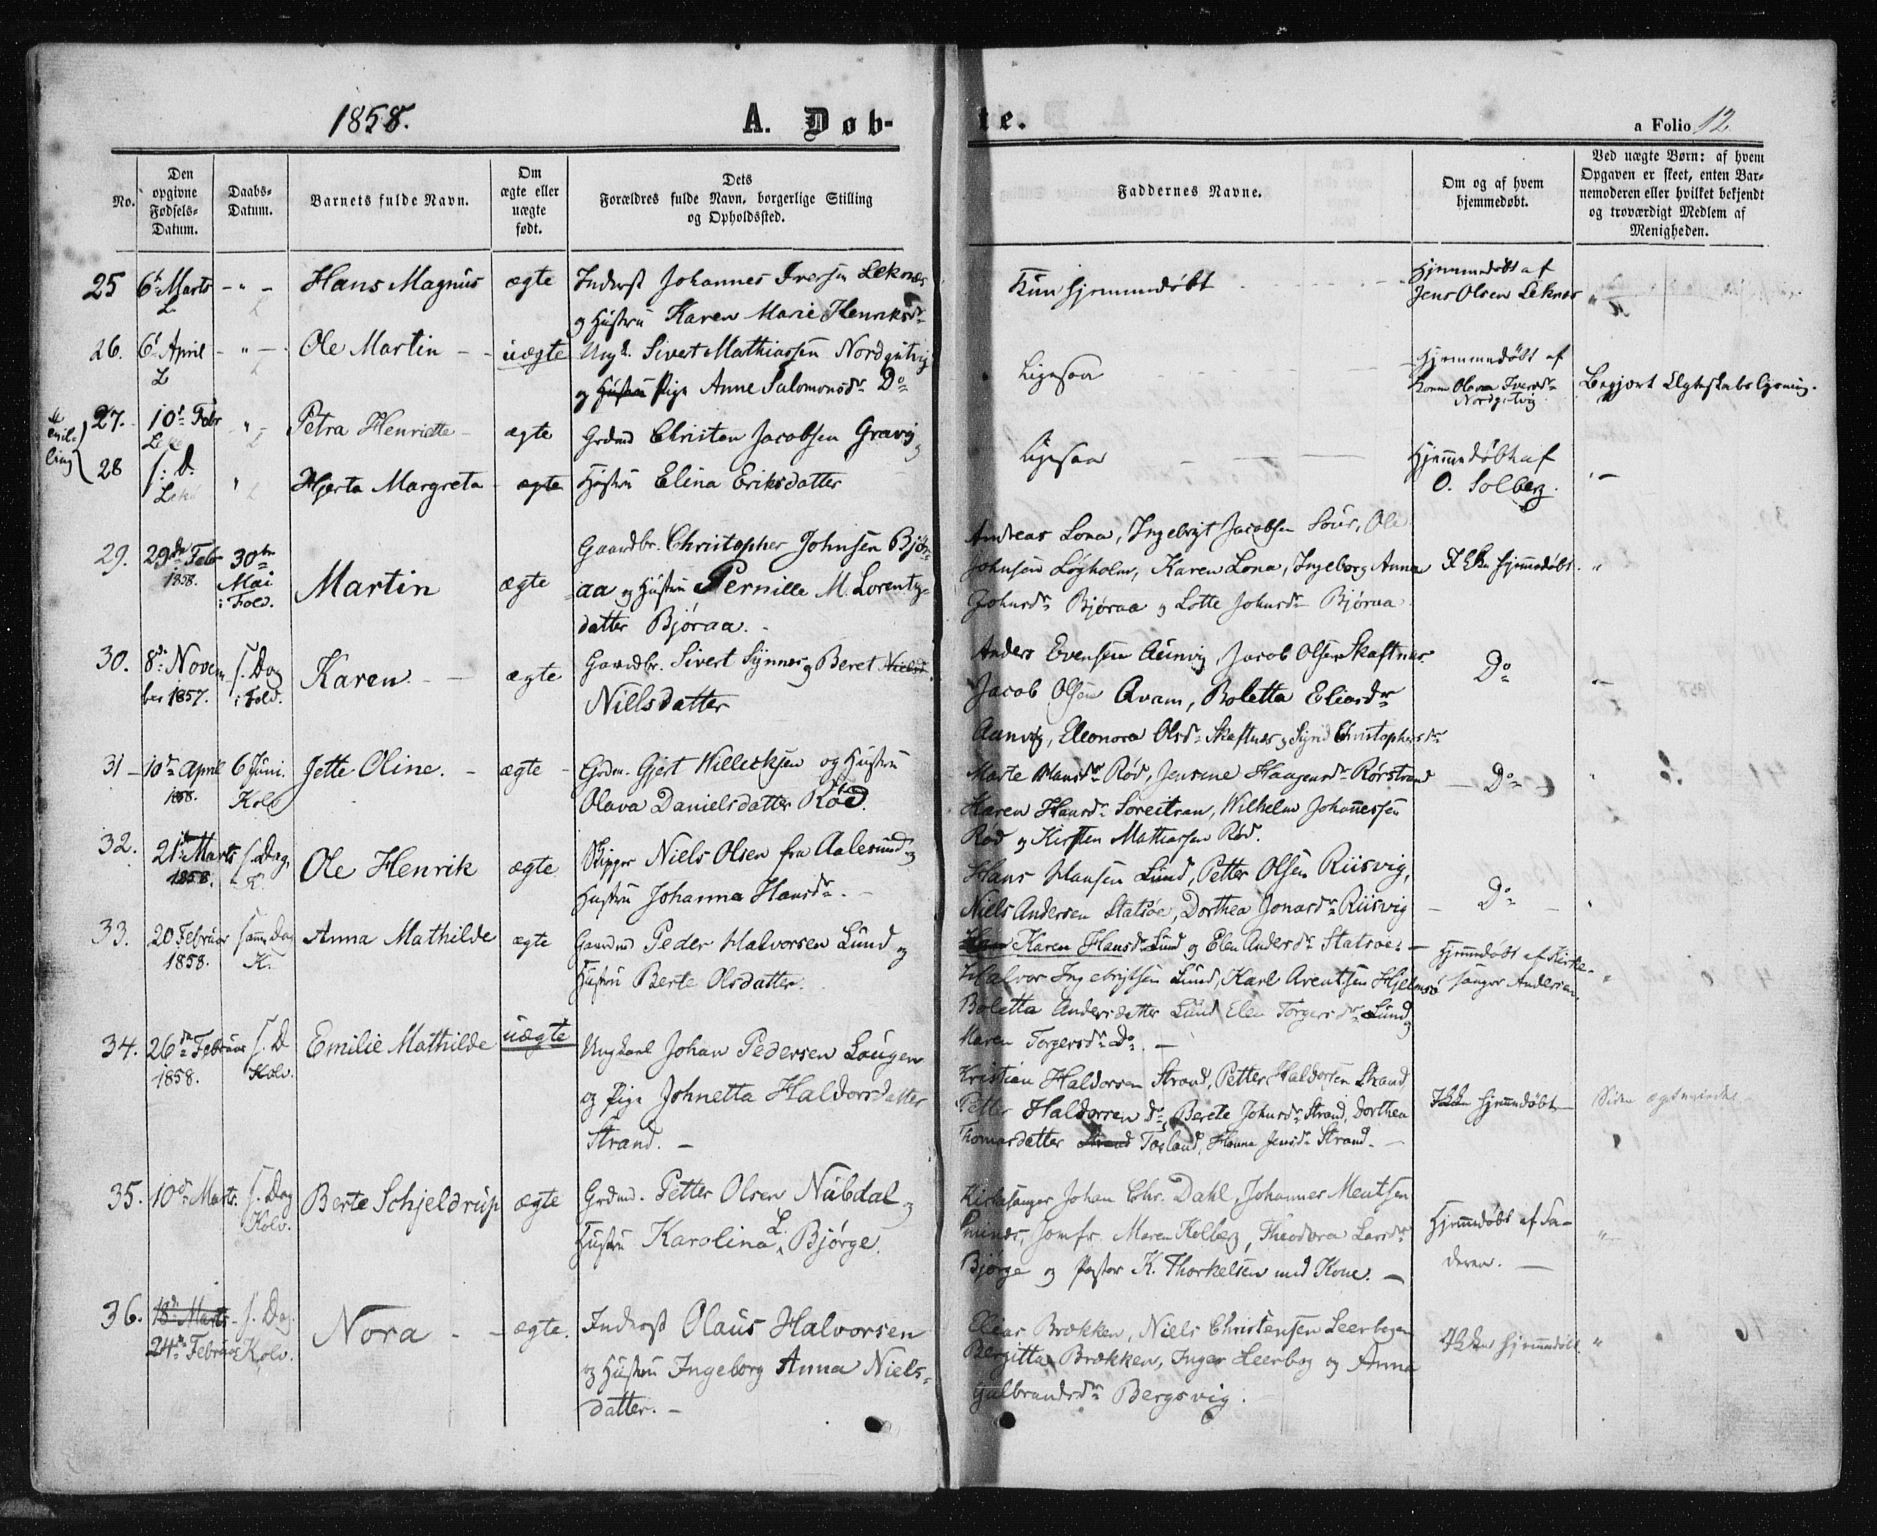 1858.
A. Døb-
te.
a Folio 12
No.
Den opgivne Fødsels-Datum.
Daabs-Datum.
Barnets fulde Navn.
Om ægte eller uægte født.
Dets Forældres fulde Navn, borgerlige Stilling og Opholdssted.
Faddernes Navne.
Om og af hvem hjemmedøbt.
Ved uægte Børn: af hvem Opgaven er skeet, enten Barnemoderen eller hvilket bekjendt og troværdigt Medlem af Menigheden.
25 6t Marts - " - Hans Magnus ægte Inderst Johannes Iversen Leknæs
og Hustru Karen Marie Henriksdr
Kun hjemmedøbt
Hjemmedøbt af
Jens Olsen Leknæs
26. 6t April - " - Ole Martin - uægte Ungk. Sivert Mathiassen Nordgutvig
og Hustru Pige Anne Salomonsdr Do
Ligesaa
Hjemmedøbt af
Kone Olava Iversdr
Nordgutvig
Begjært Ægteskabs lysning.
27. 10t Febr - " - Petra Henriette - ægte Grdmd Christen Jacobsen Gravig
Ligesaa
Hjemmedøbt af
O. Solberg.
28 s: D. " Hjerta Margreta - ægte Hustru Elina Eriksdatter
29. 29de Febr 30te Martin ægte Gaardbr. Christopher Johnsen Bjør-
1858. Mai
i Fold.
aa og Hustru Pernille M. Lorentz-
datter Bjøraa.
Andreas Lona, Ingebrigt Jacobsen Sour, Ole
Johnsen Løgholm, Karen Lona, Ingeborg Anna
Johnsdr Bjøraa og Lotte Johnsdr Bjøraa
Ikke hjemmedøbt.
30. 8de Novem- s. Dag Karen. - ægte Gaardbr. Sivert Synnes og Beret Nielsd.
ber 1857. i Fold. Nielsdatter
Anders Evensen Aunvig, Jacob Olsen Skaftnes
Jacob Olsen Qvam, Boletta Eliasdr
Aunvig, Eleonora Olsdr Skaftnes og Sigrid Christophersdr
Do
31 - 10de April 6 Juni. Jette Oline. - ægte - Grdm. Gjert Willecksen og Hustru
1858. Kolv. Olava Danielsdatter Rød.
Marte Hansdr Rød, Jensine Haagensdr Rørstrand
Karen Hansdr Soreitran, Wilhelm Johannessen
Rød og Kirsten Mathiassen Rød.
- Do -
32. 21de Marts s. Dag. Ole Henrik ægte Skipper Niels Olsen fra Aalesund og
1858. Hustru Johanna Hansdr. -
Hans Hansen Lund, Petter Olsen Riisvig,
Niels Andersen Statsøe, Dorthea Jonasdr Riisvig
Karen Hansdr Lund og Elen Andersdr Statsøe. -
- Do -
33. 20 Februar samme Dag Anna Mathilde ægte Gaardmd Peder Halvorsen Lund og
1858. K. Hustru Berte Olsdatter.
Halvor Ingebrigtsen Lund, Karl Arentsen Hjelmsø
Boletta Andersdatter Lund Elen Torgersdr Lund og
Maren Torgersdr Do. -
Hjemmedøbt af Kirke-
sanger Andersen.
34. 26de Februar s. D Emilie Mathilde uægte Ungkarl Johan Pedersen Laugen
1858. Kolv. og Pige Johnetta Haldorsdatter
Strand. -
Kristian Haldorsen Strand, Petter Haldorsen Strand
Petter Haldorsen do, Berete Johnsdr Strand, Dorthea
Thomasdatter Strand Tosland, Hanna Jensdr Strand. -
Ikke hjemmedøbt -
35. 10de Marts. s. Dag Berte Schjeldrup ægte Grdmd. Petter Olsen Nubdal og
Kolv. Hustru Karolina L. Bjørge.
Kirkesanger Johan Chr. Dahl, Johannes Mentsen
Jomfr. Maren Kolberg, Theodora Larsdr
Bjørge og Pastor K. Thorkelsen med Kone. -
Hjemmedøbt af Fa-
deren. -
36. 18de Marts - s. Dag. Nora - - ægte. Inderst Olaus Halvorsen
24de Februar Kolv. og Hustru Ingeborg Anna Niels-
datter. -
Elias Brækken, Niels Christensen Leerbogen
Bergitta Brækken, Inger Leerbog og Anna
Gulbrandsdr Bergsvig.
Ikke hjemmedøbt.